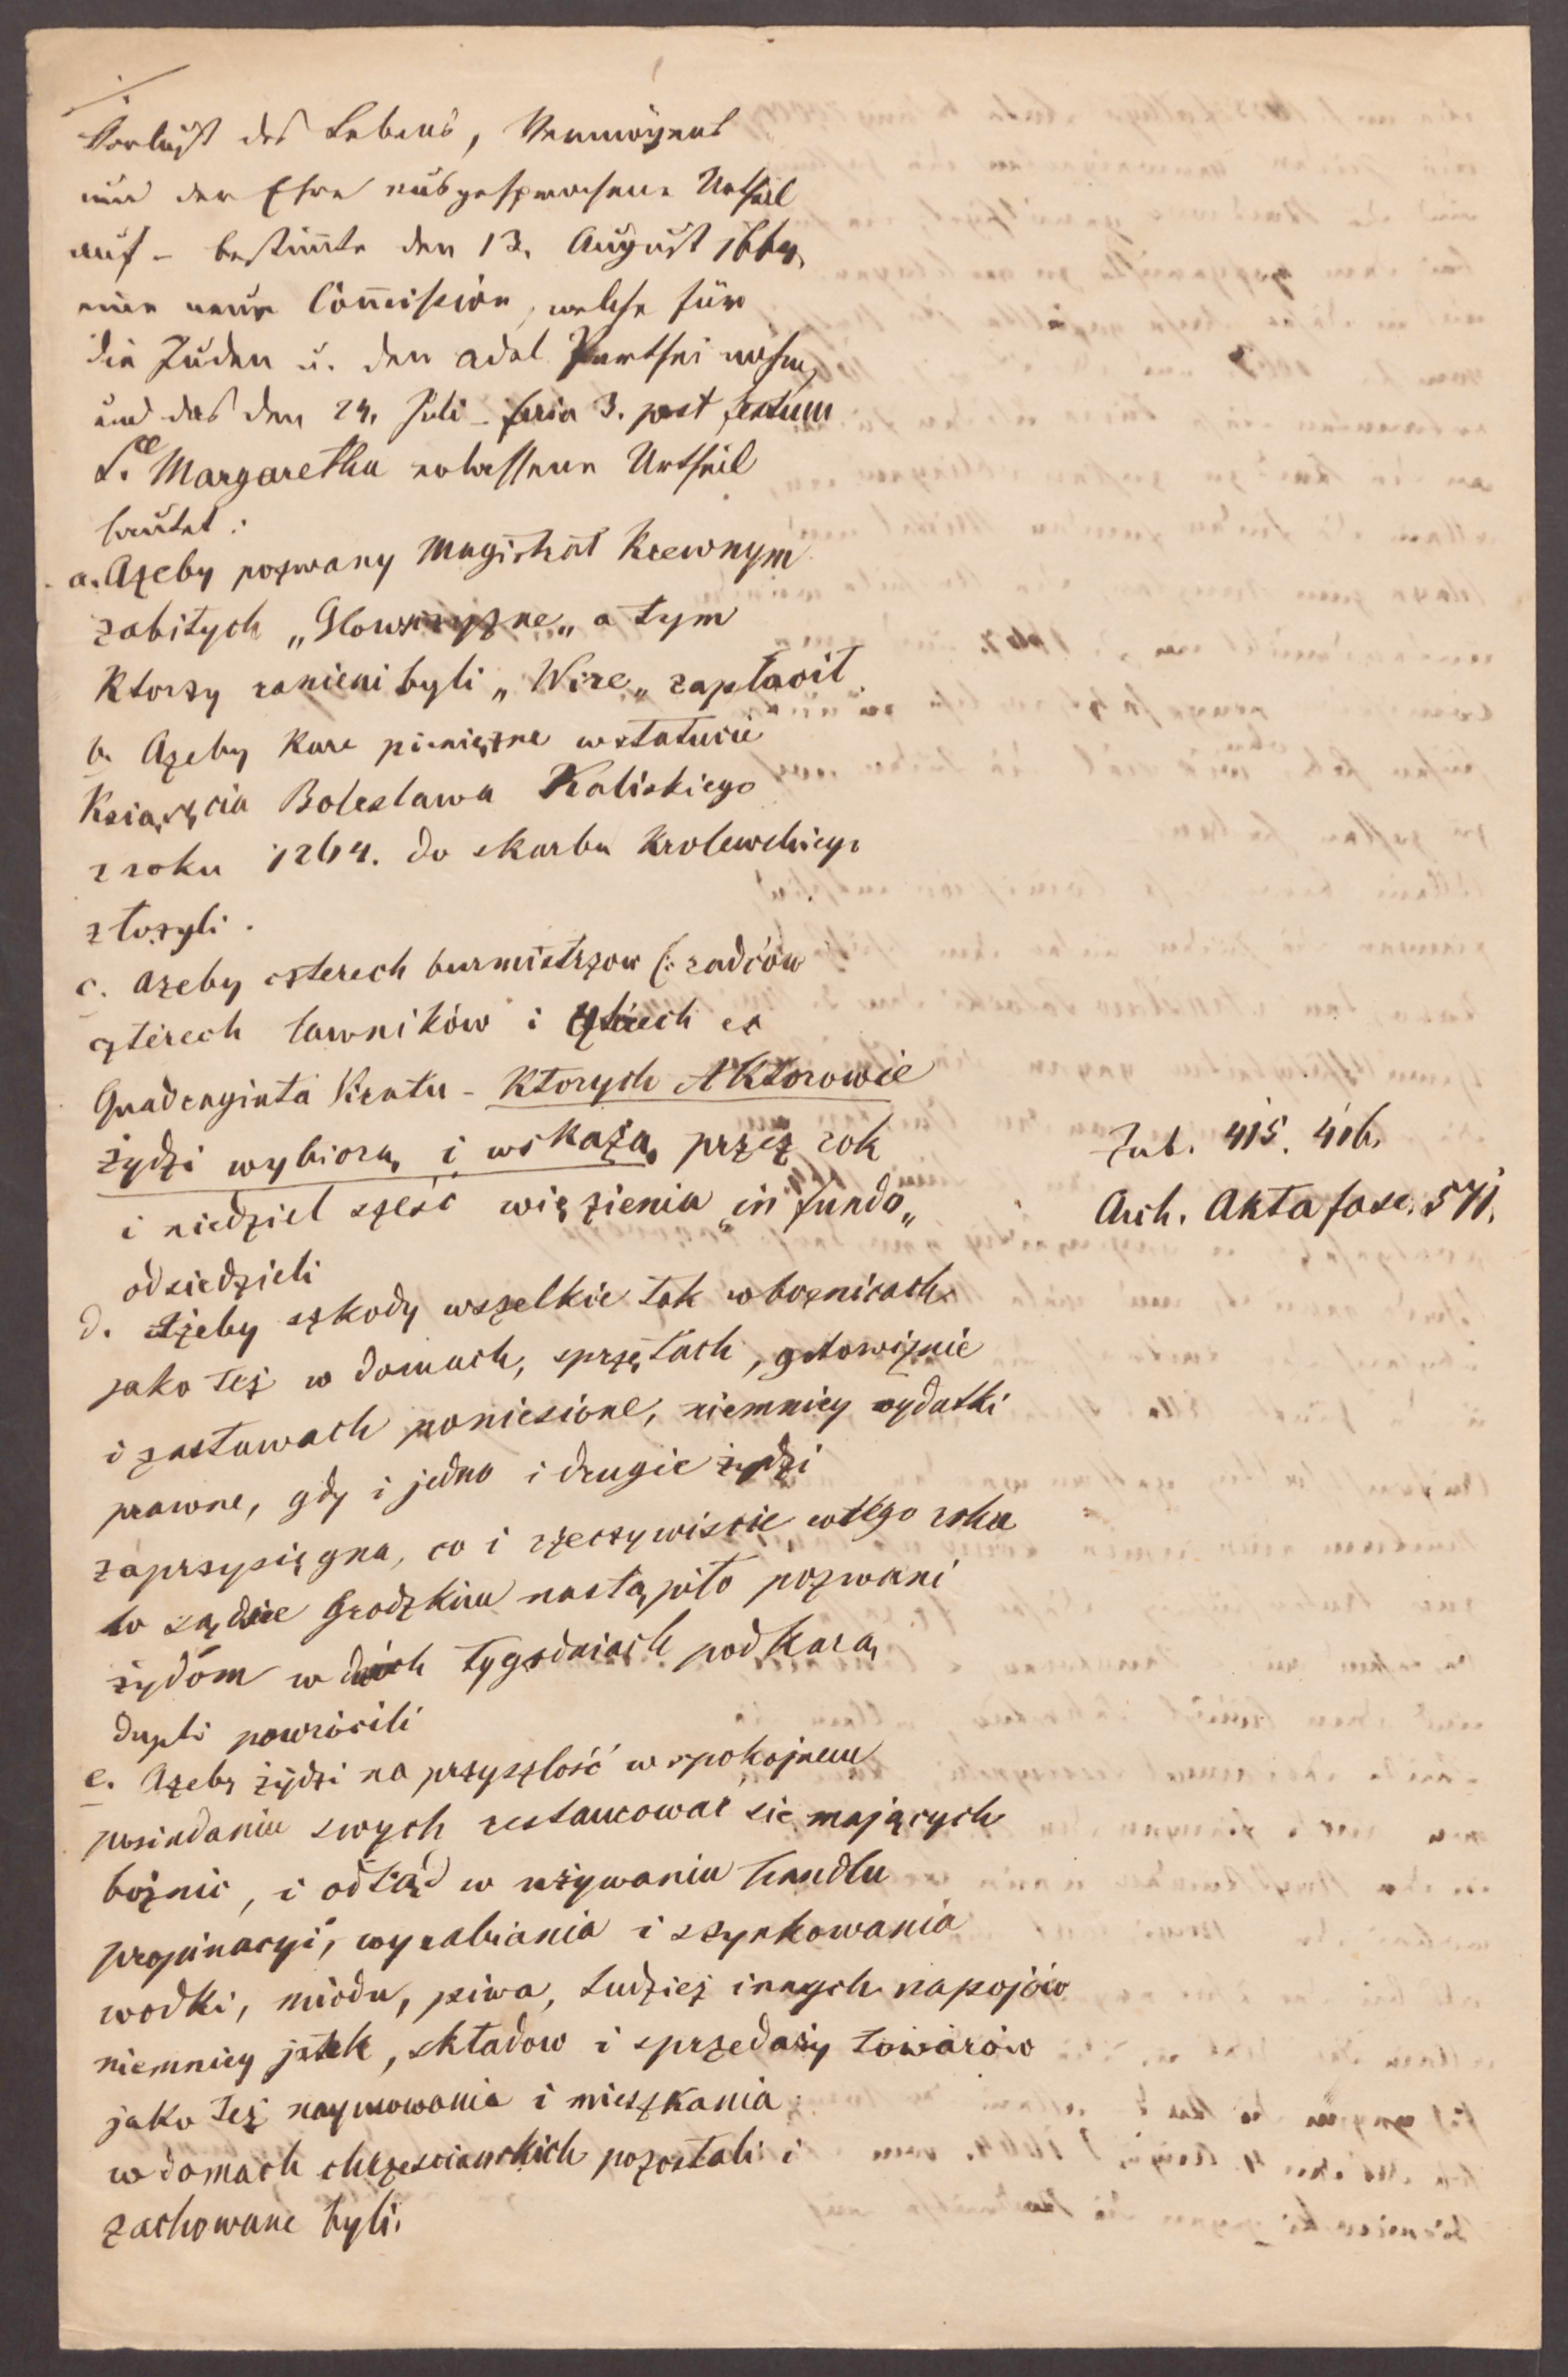 Verlust des Lebens, Vermögens
und der Ehre ausgesprochene Urtheil
auf – bestimte den 13. August 1664,
eine neue Com̄ission, welche für
die Juden u. den Adel Parthei nahm,
und das den 24. Juli – feria 3. post festum
S.ce Margaretha erlassene Urtheil
lautet:
a. Ażeby pozwany Magistrat Krewnym
zabitych „Glowszczyzne„ a tym
Ktorzy ranieni byli „Wize„ zapłacił
b. Ażeby Kare pieniężne w statucie
Książęcia Boleslawa Kaliskiego
z roku 1264. do skarbu Krolewskiego
złożyli.
c. Ażeby czterech burmistrzow (: radców
czterech ławników i czterech ex
Quadraginta Viratu – Ktorych Aktorowie
żydzi wybiorą i wskażą, przez rok
i niedziel sześć więzienia „in fundo„
odsiedzieli
d. Ażeby szkody wszelkie tak w boznicach
jako też w domach, sprzętach, gotowiznie
i zastawach poniesione, niemniey wydatki
prawne, gdy i jedno i drugie żydzi
zaprzysięgna, co i rzeczywiscie w tego roku
w sądzie Grodzkim nastąpiło pozwani
żydóm w dwóch tygodniach pod Karą
dupli powrócili
e. Ażeby żydzi na przyszlość w spokojnem
posiadaniu swych restaurować sie mających
bożnic, i odtąd w używaniu handlu
propinacyi, wyrabiania i szynkowania
wodki, miodu, piwa, tudzież innych napojów
niemniey jatek, składow i sprzedaży towarów
jako też naymowania i mieszkania
w domach chrzescianskich pozostali i
zachowane byli.
Zub. 415. 416.
Arch. Akta fasc. 571.